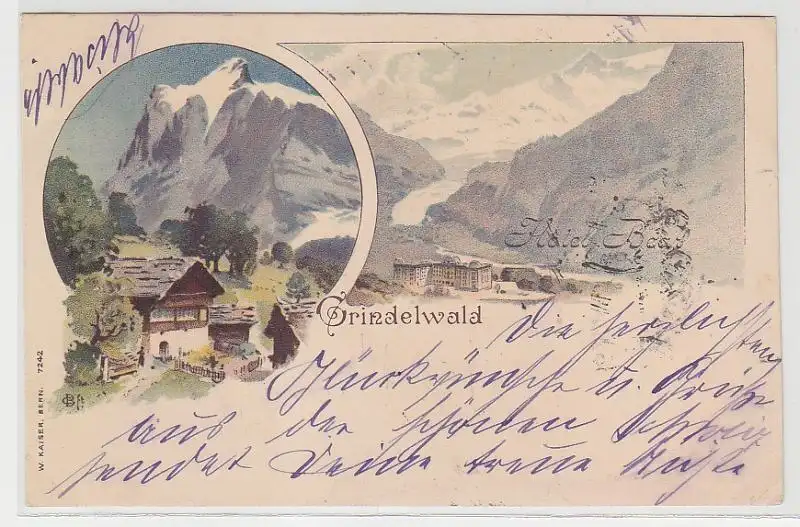 Hotel Bear
Grindelwald
Die herzlichsten
Glückwünsche u. Grüße
aus der schönen Schweiz
sendet Deine treue
W. KAISER, BERN. 7242